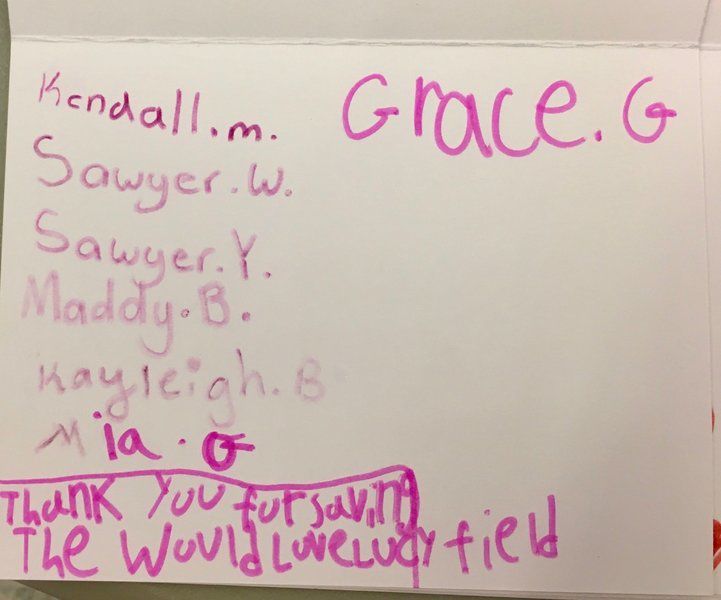 Kendall.m.
Grace.G
Sawyer.W.
Sawyer.Y.
Maddy.B.
Kayleigh.B
Mia.G
Thank You for saving
The Would Love Lucy field